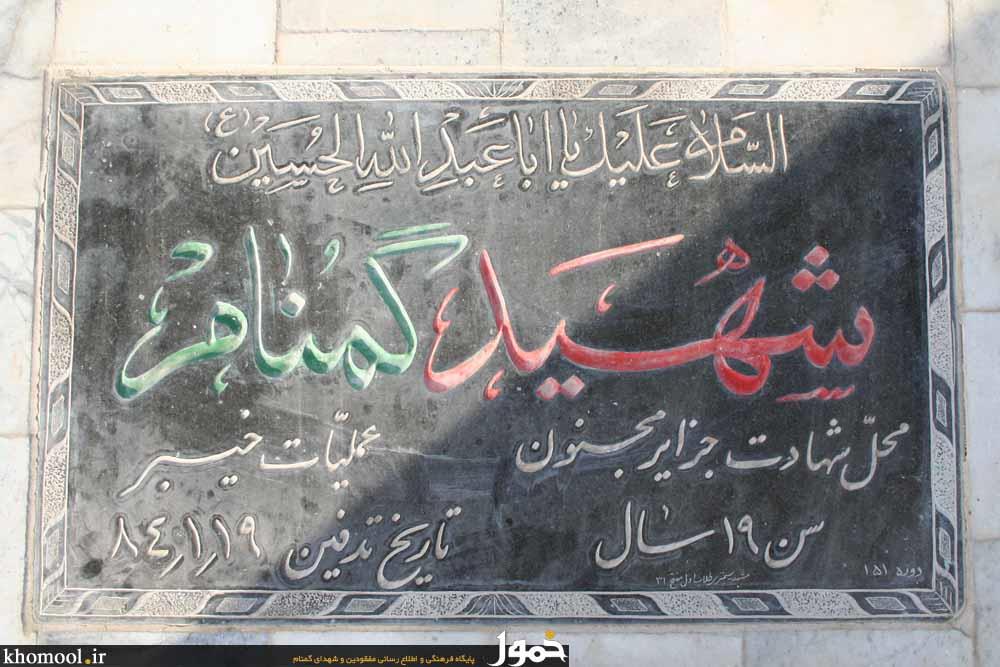 السلام علیک یا اباعبدالله الحسین (ع)
شهید گمنام
محلّ شهادت جزایر مجنون عملیّات خیبر
سن ۱۹ سال تاریخ تدفین ۸۴٫۱٫۱۹
دوره ۱۵۱
khomool.ir
خمول
پایگاه فرهنگی و اطلاع رسانی مفقودین و شهدای گمنام